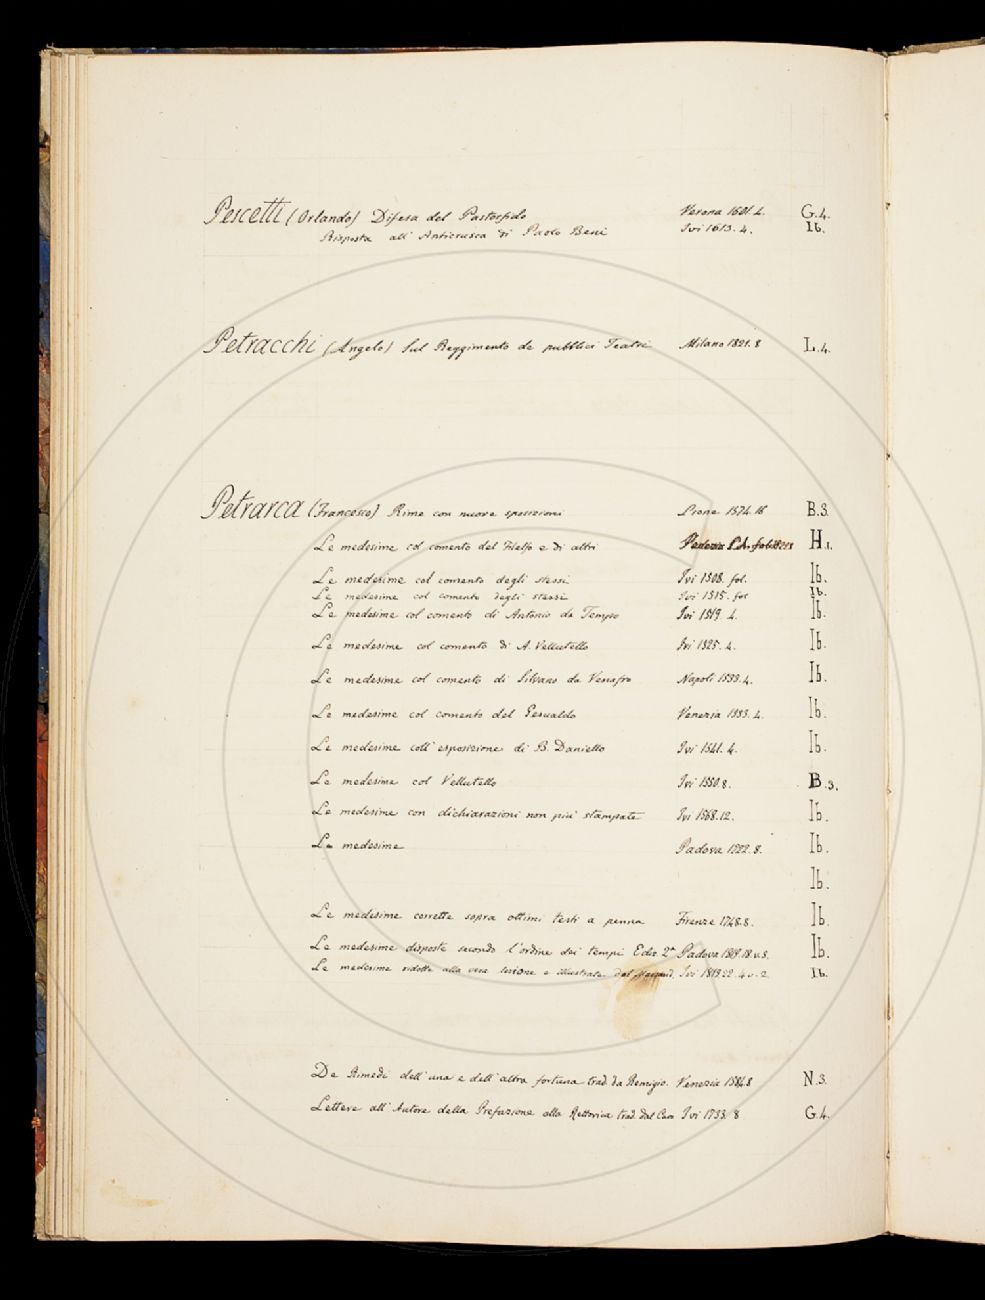 Pescetti (Orlando) Difesa del Pastorfido Verona 1601. 4. G. 4.
Risposta all' Anticrusca di Paolo Beni Ivi 1613. 4. Ib.
Petracchi (Angelo) Sul Reggimento de pubblici Teatri Milano 1821. 8 L. 4.
Petrarca (Francesco) Rime con nuove sposizioni Lione 1574. 16 B. 3.
Le medesime col comento del Filelfo e di altri Venezia H. 1.
Le medesime col comento degli stessi Ivi 1508. fol. Ib.
Le medesime col comento degli stessi Ivi 1515. fol Ib.
Le medesime col comento di Antonio da Tempo Ivi 1519. 4. Ib.
Le medesime col comento di A. Vellutello Ivi 1525. 4. Ib.
Le medesime col comento di Silvano da Venafro Napoli 1533. 4. Ib.
Le medesime col comento del Gesualdo Venezia 1533. 4. Ib.
Le medesime coll' esposizione di B. Daniello Ivi 1541. 4. Ib.
Le medesime col Vellutello Ivi 1550. 8. B. 3.
Le medesime con dichiarazioni non più stampate Ivi 1568. 12. Ib.
Le medesime Padova 1722. 8. Ib.
Ib.
Le medesime corrette sopra ottimi testi a penna Firenze 1748. 8. Ib.
Le medesime disposte secondo l'ordine dei tempi Ediz 2ª Padova Ib.
Le medesime ridotte alla vera lezione e illustrate dal Marsand. Ivi 1819 22. 4 v. 2 Ib.
De Rimedi dell' una e dell' altra fortuna trad da Remigio. Venezia 1584 8 N. 3.
Lettere all' Autore della Prefazione alla Rettorica trad. dal Caro Ivi 1733. 8 G. 4.